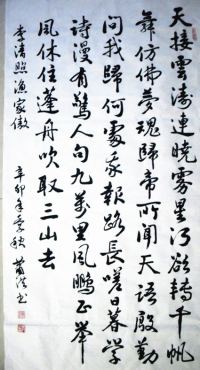 天接雲濤連曉霧星河欲轉千帆
舞仿佛夢魂歸帝所聞天語殷勤
問我歸何處我報路長嗟日暮學
詩漫有驚人句九萬里風鵬正舉
風休住蓬舟吹取三山去
李清照漁家傲 辛卯年季秋 書